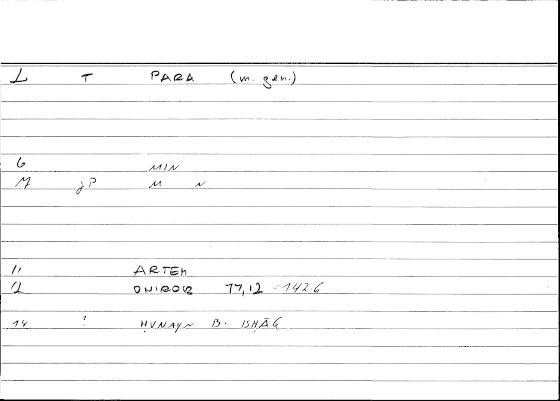 L T PARA (m. gen.)
6 MIN
M gP M N
11 ARTEM
12 ONIROK 77,12 = 142.6
14 ? ḤUNAYN B. ISḤĀQ